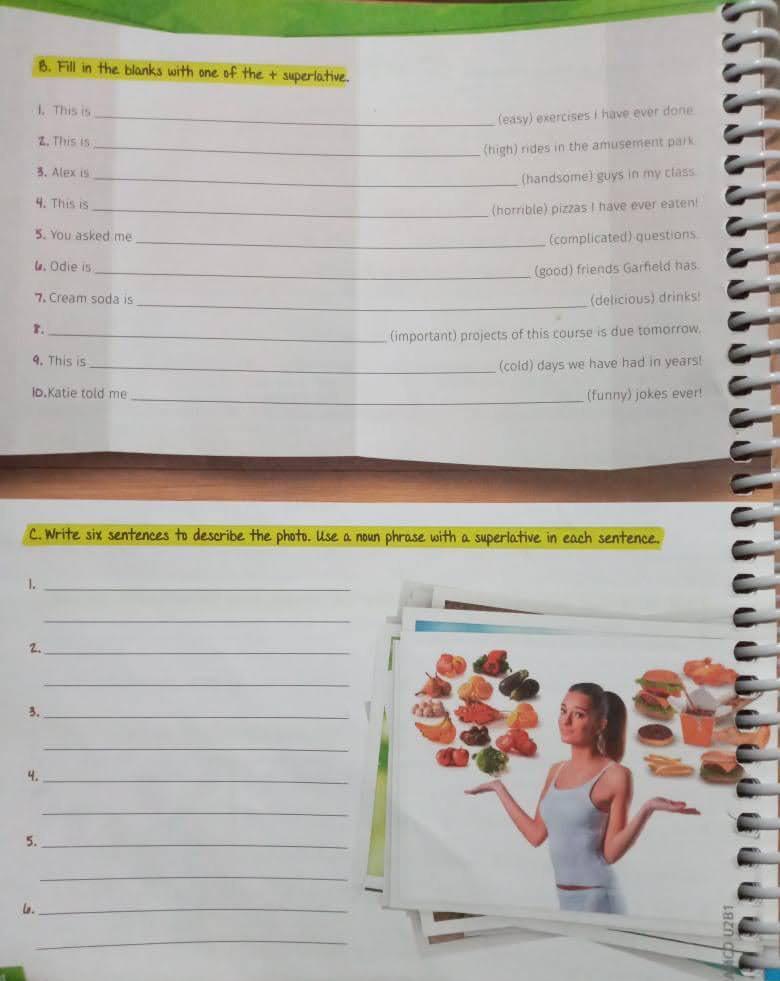 B. Fill in the blanks with one of the + superlative.
1. This is ____________ (easy) exercises I have ever done.
2. This is ____________ (high) rides in the amusement park.
3. Alex is ____________ (handsome) guys in my class.
4. This is ____________ (horrible) pizzas I have ever eaten!
5. You asked me ____________ (complicated) questions.
6. Odie is ____________ (good) friends Garfield has.
7. Cream soda is ____________ (delicious) drinks!
8. ____________ (important) projects of this course is due tomorrow.
9. This is ____________ (cold) days we have had in years!
10. Katie told me ____________ (funny) jokes ever!
C. Write six sentences to describe the photo. Use a noun phrase with a superlative in each sentence.
1. ____________
2. ____________
3. ____________
4. ____________
5. ____________
6. ____________
U2B1